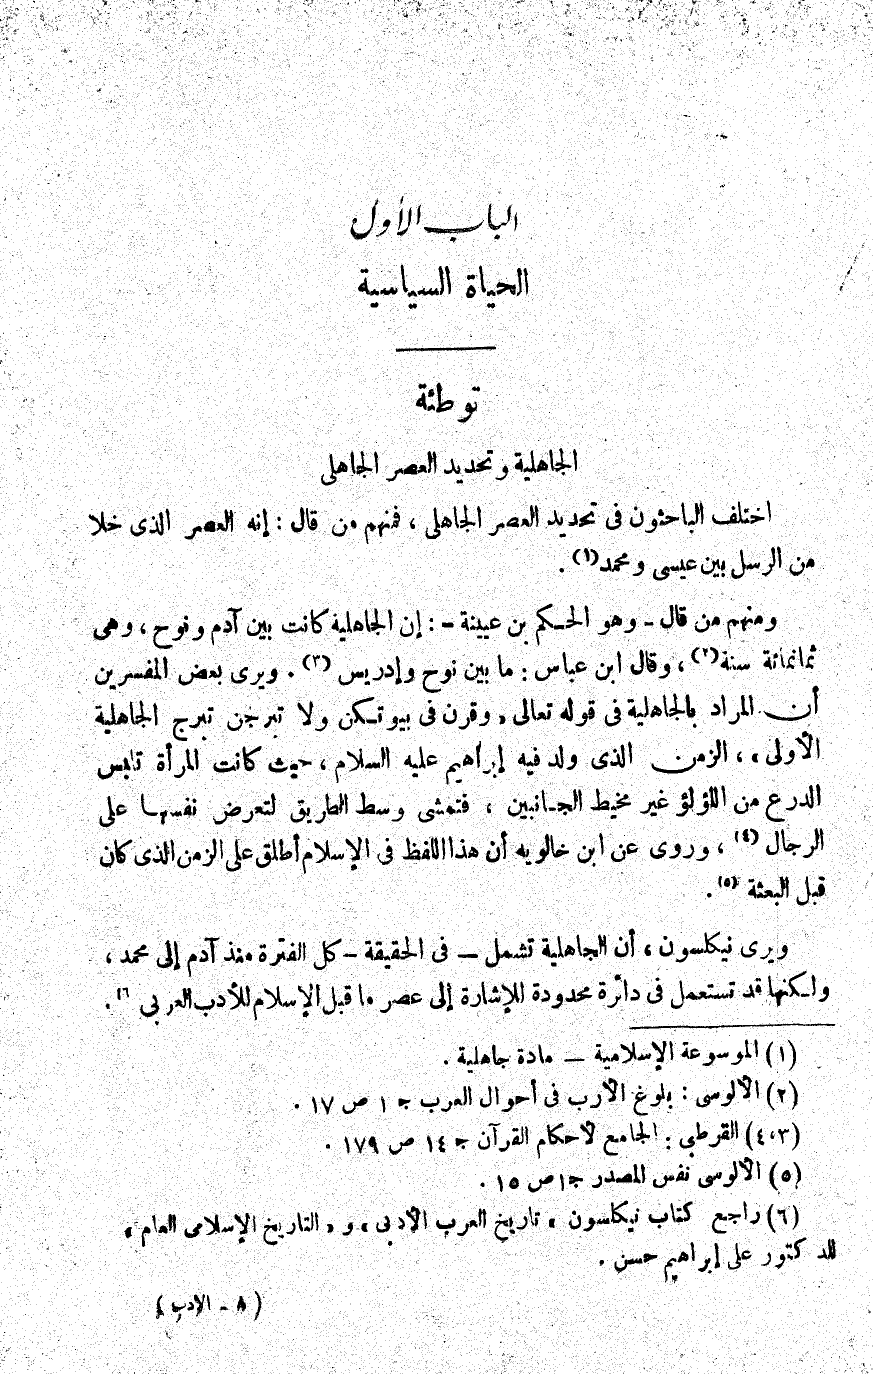 الباب الأول
الحياة السياسية
توطئة
الجاهلية وتحديد العصر الجاهلى
اختلف الباحثون فى تحديد العصر الجاهلى ، فمنهم من قال : إنه العصر الذى خلا
من الرسل بين عيسى ومحمد(١) .
ومنهم من قال - وهو الحكم بن عيينة - : إن الجاهلية كانت بين آدم ونوح ، وهى
ثمانمائة سنة(٢) ، وقال ابن عباس : ما بين نوح وإدريس (٣) . ويرى بعض المفسرين
أن المراد بالجاهلية فى قوله تعالى « وقرن فى بيوتكن ولا تبرجن تبرج الجاهلية
الأولى » ، الزمن الذى ولد فيه إبراهيم عليه السلام ، حيث كانت المرأة تلبس
الدرع من اللؤلؤ غير مخيط الجانبين ، فتمشى وسط الطريق لتعرض نفسها على
الرجال (٤) ، وروى عن ابن خالويه أن هذا اللفظ فى الإسلام أطلق على الزمن الذى كان
قبل البعثة (٥) .
ويرى نيكلسون ، أن الجاهلية تشمل — فى الحقيقة - كل الفترة منذ آدم إلى محمد ،
ولكنها قد تستعمل فى دائرة محدودة للإشارة إلى عصر ما قبل الإسلام للأدب العربى (٦) .
(١) الموسوعة الإسلامية — مادة جاهلية .
(٢) الألوسى : بلوغ الأرب فى أحوال العرب ج ١ ص ١٧ .
(٤،٣) القرطبى : الجامع لأحكام القرآن ج ١٤ ص ١٧٩ .
(٥) الألوسى نفس المصدر ج١ ص ١٥ .
(٦) راجع كتاب نيكلسون « تاريخ العرب الأدبى » و « التاريخ الإسلامى العام »
للدكتور على إبراهيم حسن .
( ٨ - الأدب )